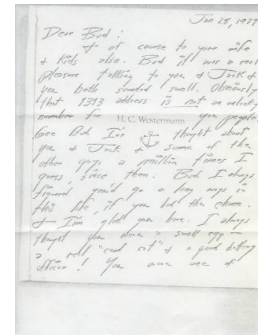 Jan 28, 1979
Dear Bud:
& of course to your wife
& Kids also. Bud it was a real
pleasure talking to you & Jack &
you both sounded swell. Obviously
that 1313 address is not an unlucky
number for you people.
H. C. Westermann
Gee Bud I've thought about
you & Jack & some of the
other guys a million times I
guess, since then. Bud I always
figured you'd go a long ways in
this life, if you had the chance.
& I'm glad you have. I always
thought you were a swell egg —
a real "cool cat" & a good
officer! You were one of